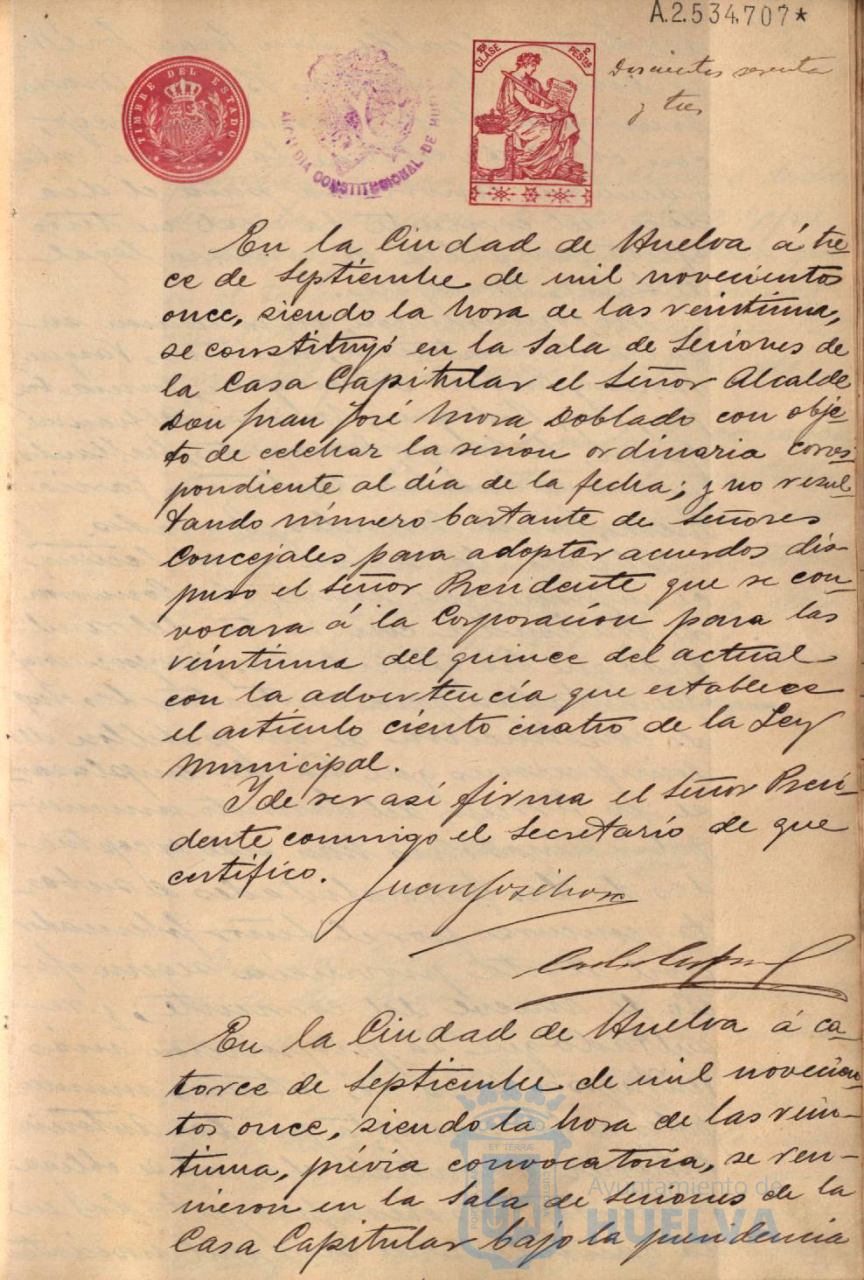 A.2.534,707*
TIMBRE DEL ESTADO
ALCALDIA CONSTITUCIONAL DE HU
10ª CLASE
2 PESTAS
Doscientos sesenta
y tres
En la Ciudad de Huelva á tre-
ce de Septiembre de mil novecientos
once, siendo la hora de las veintiuna,
se constituyó en la Sala de Sesiones de
la Casa Capitular el Señor Alcalde
Don Juan José Mora Doblado con obje-
to de celebrar la sesión ordinaria corres-
pondiente al día de la fecha; y no resul-
tando número bastante de Señores
Concejales para adoptar acuerdos dis-
puso el Señor Presidente que se con-
vocara á la Corporación para las
veintiuna del quince del actual
con la advertencia que establece
el artículo ciento cuatro de la Ley
Municipal.
Y de ser así firma el Señor Presi-
dente conmigo el Secretario de que
certifico.
Juan José Mora
En la Ciudad de Huelva á ca-
torce de Septiembre de mil novecien-
tos once, siendo la hora de las vein-
tiuna, prévia convocatoria, se reu-
nieron en la Sala de Sesiones de la
Casa Capitular bajo la presidencia
Ayuntamiento de
HUELVA